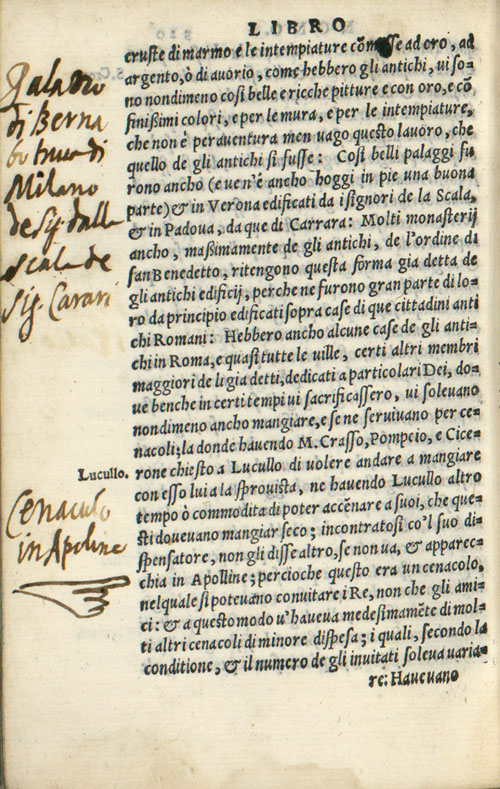 LIBRO
cruste di marmo e le intempiature commesse ad oro, ad
argento, ò di auorio, come hebbero gli antichi, ui so-
no nondimeno cosi belle e ricche pitture e con oro, e cõ
finißimi colori, e per le mura, e per le intempiature,
che non è perauentura men uago questo lauoro, che
quello de gli antichi si fusse: Cosi belli palaggi fu
rono ancho (e uen'è ancho hoggi in pie una buona
parte) & in Verona edificati da i signori de la Scala,
& in Padoua, da que di Carrara: Molti monasterij
ancho, maßimamente de gli antichi, de l'ordine di
san Benedetto, ritengono questa forma gia detta de
gli antichi edificij, perche ne furono gran parte di lo-
ro da principio edificati sopra case di que cittadini anti
chi Romani: Hebbero ancho alcune case de gli anti-
chi in Roma, e quasi tutte le uille, certi altri membri
maggiori de li gia detti, dedicati a particolari Dei, do-
ue benche in certi tempi ui sacrificassero, ui soleuano
nondimeno ancho mangiare, e se ne seruiuano per ce-
nacoli; la donde hauendo M. Crasso, Pompeio, e Cice-
rone chiesto a Lucullo di uolere andare a mangiare
con esso lui a la sprouista, ne hauendo Lucullo altro
tempo ò commodita di poter accẽnare a suoi, che que-
sti doueuano mangiar seco; incontratosi co'l suo di-
spensatore, non gli disse altro, se non ua, & apparec-
chia in Apolline; percioche questo era un cenacolo,
nel quale si poteuano conuitare i Re, non che gli ami-
ci: & a questo modo u'haueua medesimamẽte di mol-
ti altri cenacoli di minore dispesa; i quali, secondo la
conditione, & il numero de gli inuitati soleua uaria-
re: Haueuano
Lucullo.
Palazzo
di Berna
bo
di
Milano
de Sig. dalla
scala de
Sig. Carari
Cenaculo
in Apoline